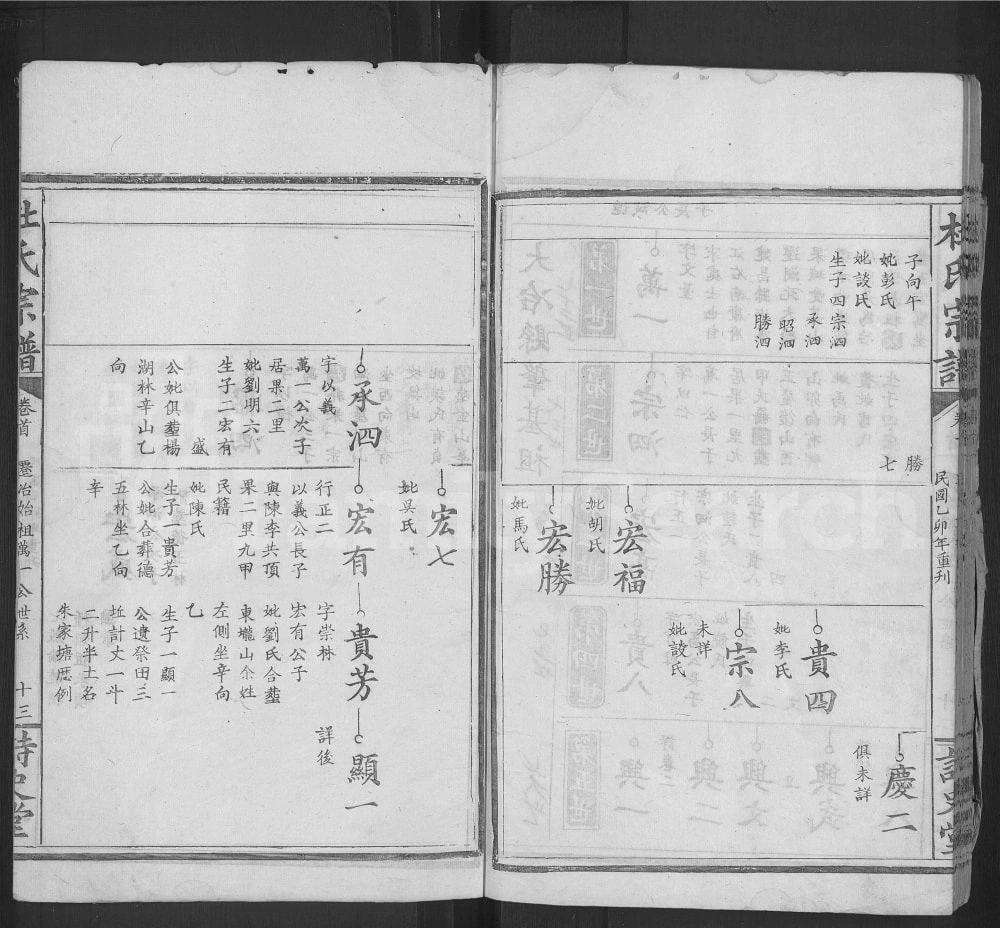 杜氏宗譜
民國乙卯年重刊
子向午
妣彭氏
妣談氏
生子四宗泗
承泗
昭泗
勝泗
勝
七
宏福
妣胡氏
宏勝
妣馬氏
貴四
妣李氏
宗八
未詳
妣談氏
慶二
俱未詳
宏七
妣吳氏
承泗
字以義
萬一公次子
居果二里
妣劉明六
生子二宏有
盛
公妣俱塟楊
湖林辛山乙
向
宏有
行正二
以義公長子
與陳李共頂
果二里九甲
民籍
妣陳氏
生子一貴芳
公妣合葬德
五林坐乙向
辛
貴芳
字崇林
宏有公子
妣劉氏合塟
東壠山尒姓
左側坐辛向
乙
生子一顯一
公遺祭田三
坵計丈一斗
二升半土名
朱家塘歷例
顯一
詳後
杜氏宗譜
卷首
遷冶始祖萬一公世系
十三
詩史堂